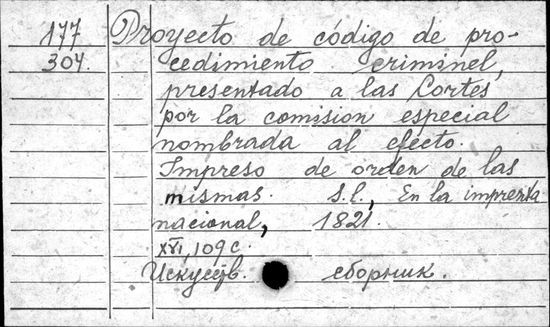 177
304.
Proyecto de código de pro-
cedimiento criminel,
presentado a las Cortes
por la comision especial
nombrada al efecto.
Impreso de orden de las
mismas. s.l., En la imprenta
nacional, 1821.
XVI, 109 с.
Искусств. сборник.